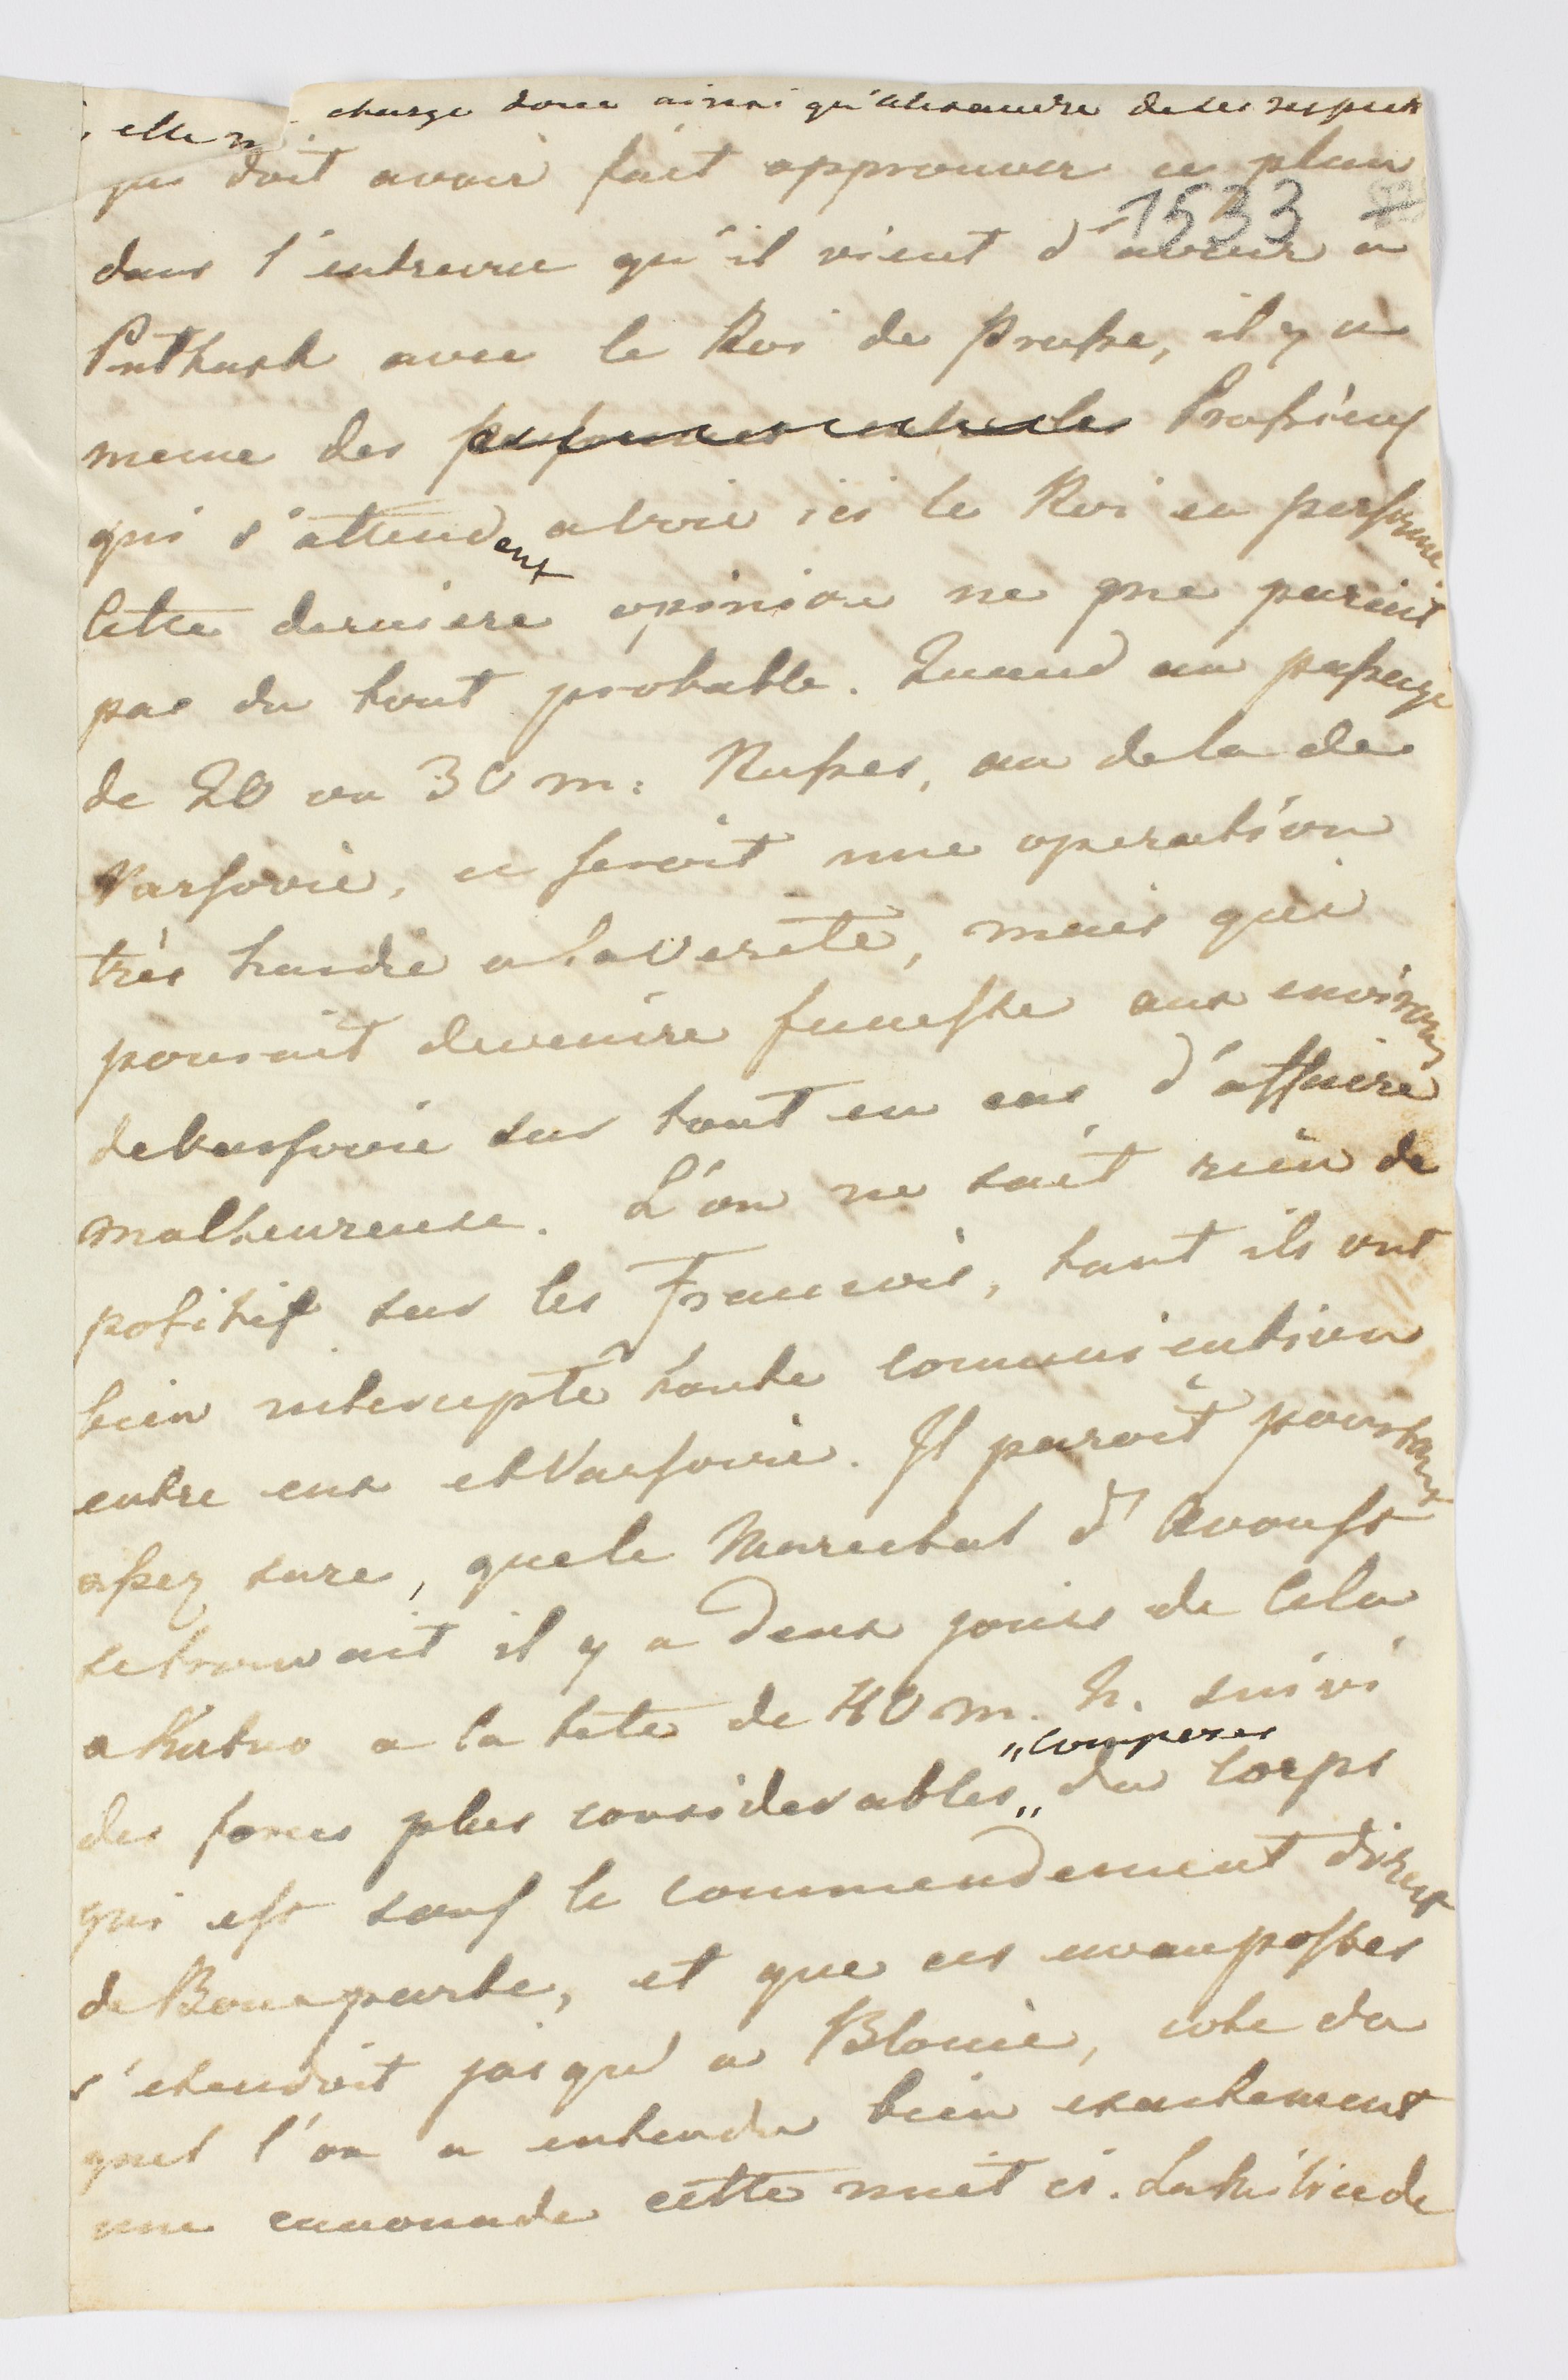 , elle m charge donc ainsi qu'Alexandre de ses respects
qui doit avoir fait approuver ce plan
1533
dans l'entrevue qu'il vient d'avoir a
Pultusk avec le Roi de Prusse, il y a
meme des Prussiens
qui s'attendent a voir ici le Roi en personne
Cette derniere opinion ne me parait
pas du tout probable. Quand au passage
de 20 ou 30 m: Russes, au dela de
Varsovie, ce seroit une operation
très hardie a la verité, mais qui
pourait devenire funeste aux environs
de Varsovie sur tout en cas d'affaire
malheureuse. L'on ne sait rien de
positif sur les Francois, tant ils ont
bien interupté toute communication
entre eux et Varsovie. Il paroit pourtant
assez sure, que le Marechal d'Avoust
se trouvait il y a deux jours de cela
a Kutno a la tete de 40 m. h. suivi
des forces plus considerables „ du corps
„ composes
qui est souf le commendement direct
de Bonaparte, et que ces avanpostes
s'etendoit jusqu'a Blonie, cote du
quel l'on a entendu bien exactement
une canonade cette nuit ci. La Milice de